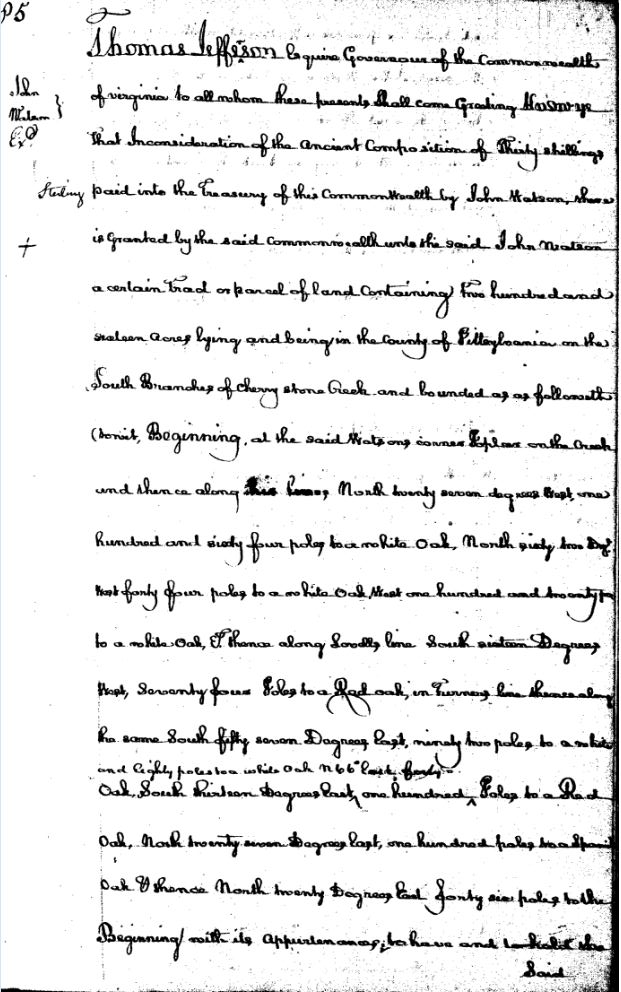 95
John
Watson
Ex
Thomas Jefferson Esquire Governour of the Commonwealth
of virginia to all whom these presents Shall come Greeting Know ye
that Inconsideration of the Ancient Composition of Thirty shillings
Sterling paid into the Treasury of this Commonwealth by John Watson, there
is Granted by the said Commonwealth unto the said John Watson
+
a certain Tract or parcel of land Containing two hundred and
sixteen Acres lying and being in the County of Pittsylvania on the
South Branches of Cherry stone Creek and bounded as as followeth
(towit, Beginning, at the said Watsons corner Poplar on the Creek
and thence along his lines, North twenty seven degrees West, one
hundred and sixty four poles to a white Oak, North sixty two Degs
West forty four poles to a white Oak West one hundred and twenty
to a white Oak, & thence along line South sixteen Degrees
West, Seventy four Poles to a Red oak, in Turners line thence along
the same South fifty seven Degrees East, ninety two poles to a white
and Eighty poles to a white Oak N 66° East, forty
Oak, South thirteen Degrees East, one hundred ^ Poles to a Red
Oak, North twenty seven Degrees East, one hundred poles to a Spanish
Oak & thence North twenty Degrees East forty six poles to the
Beginning with its Appurtenances; to have and to hold the
Said